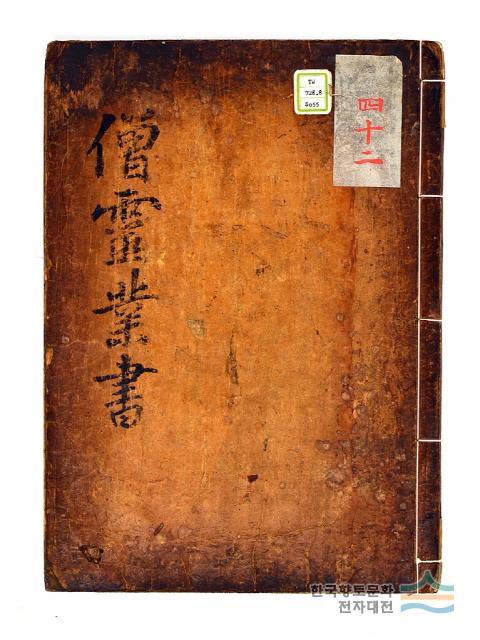 四十二
TW
728.8
S055
僧霊業書
한국향토문화
전자대전